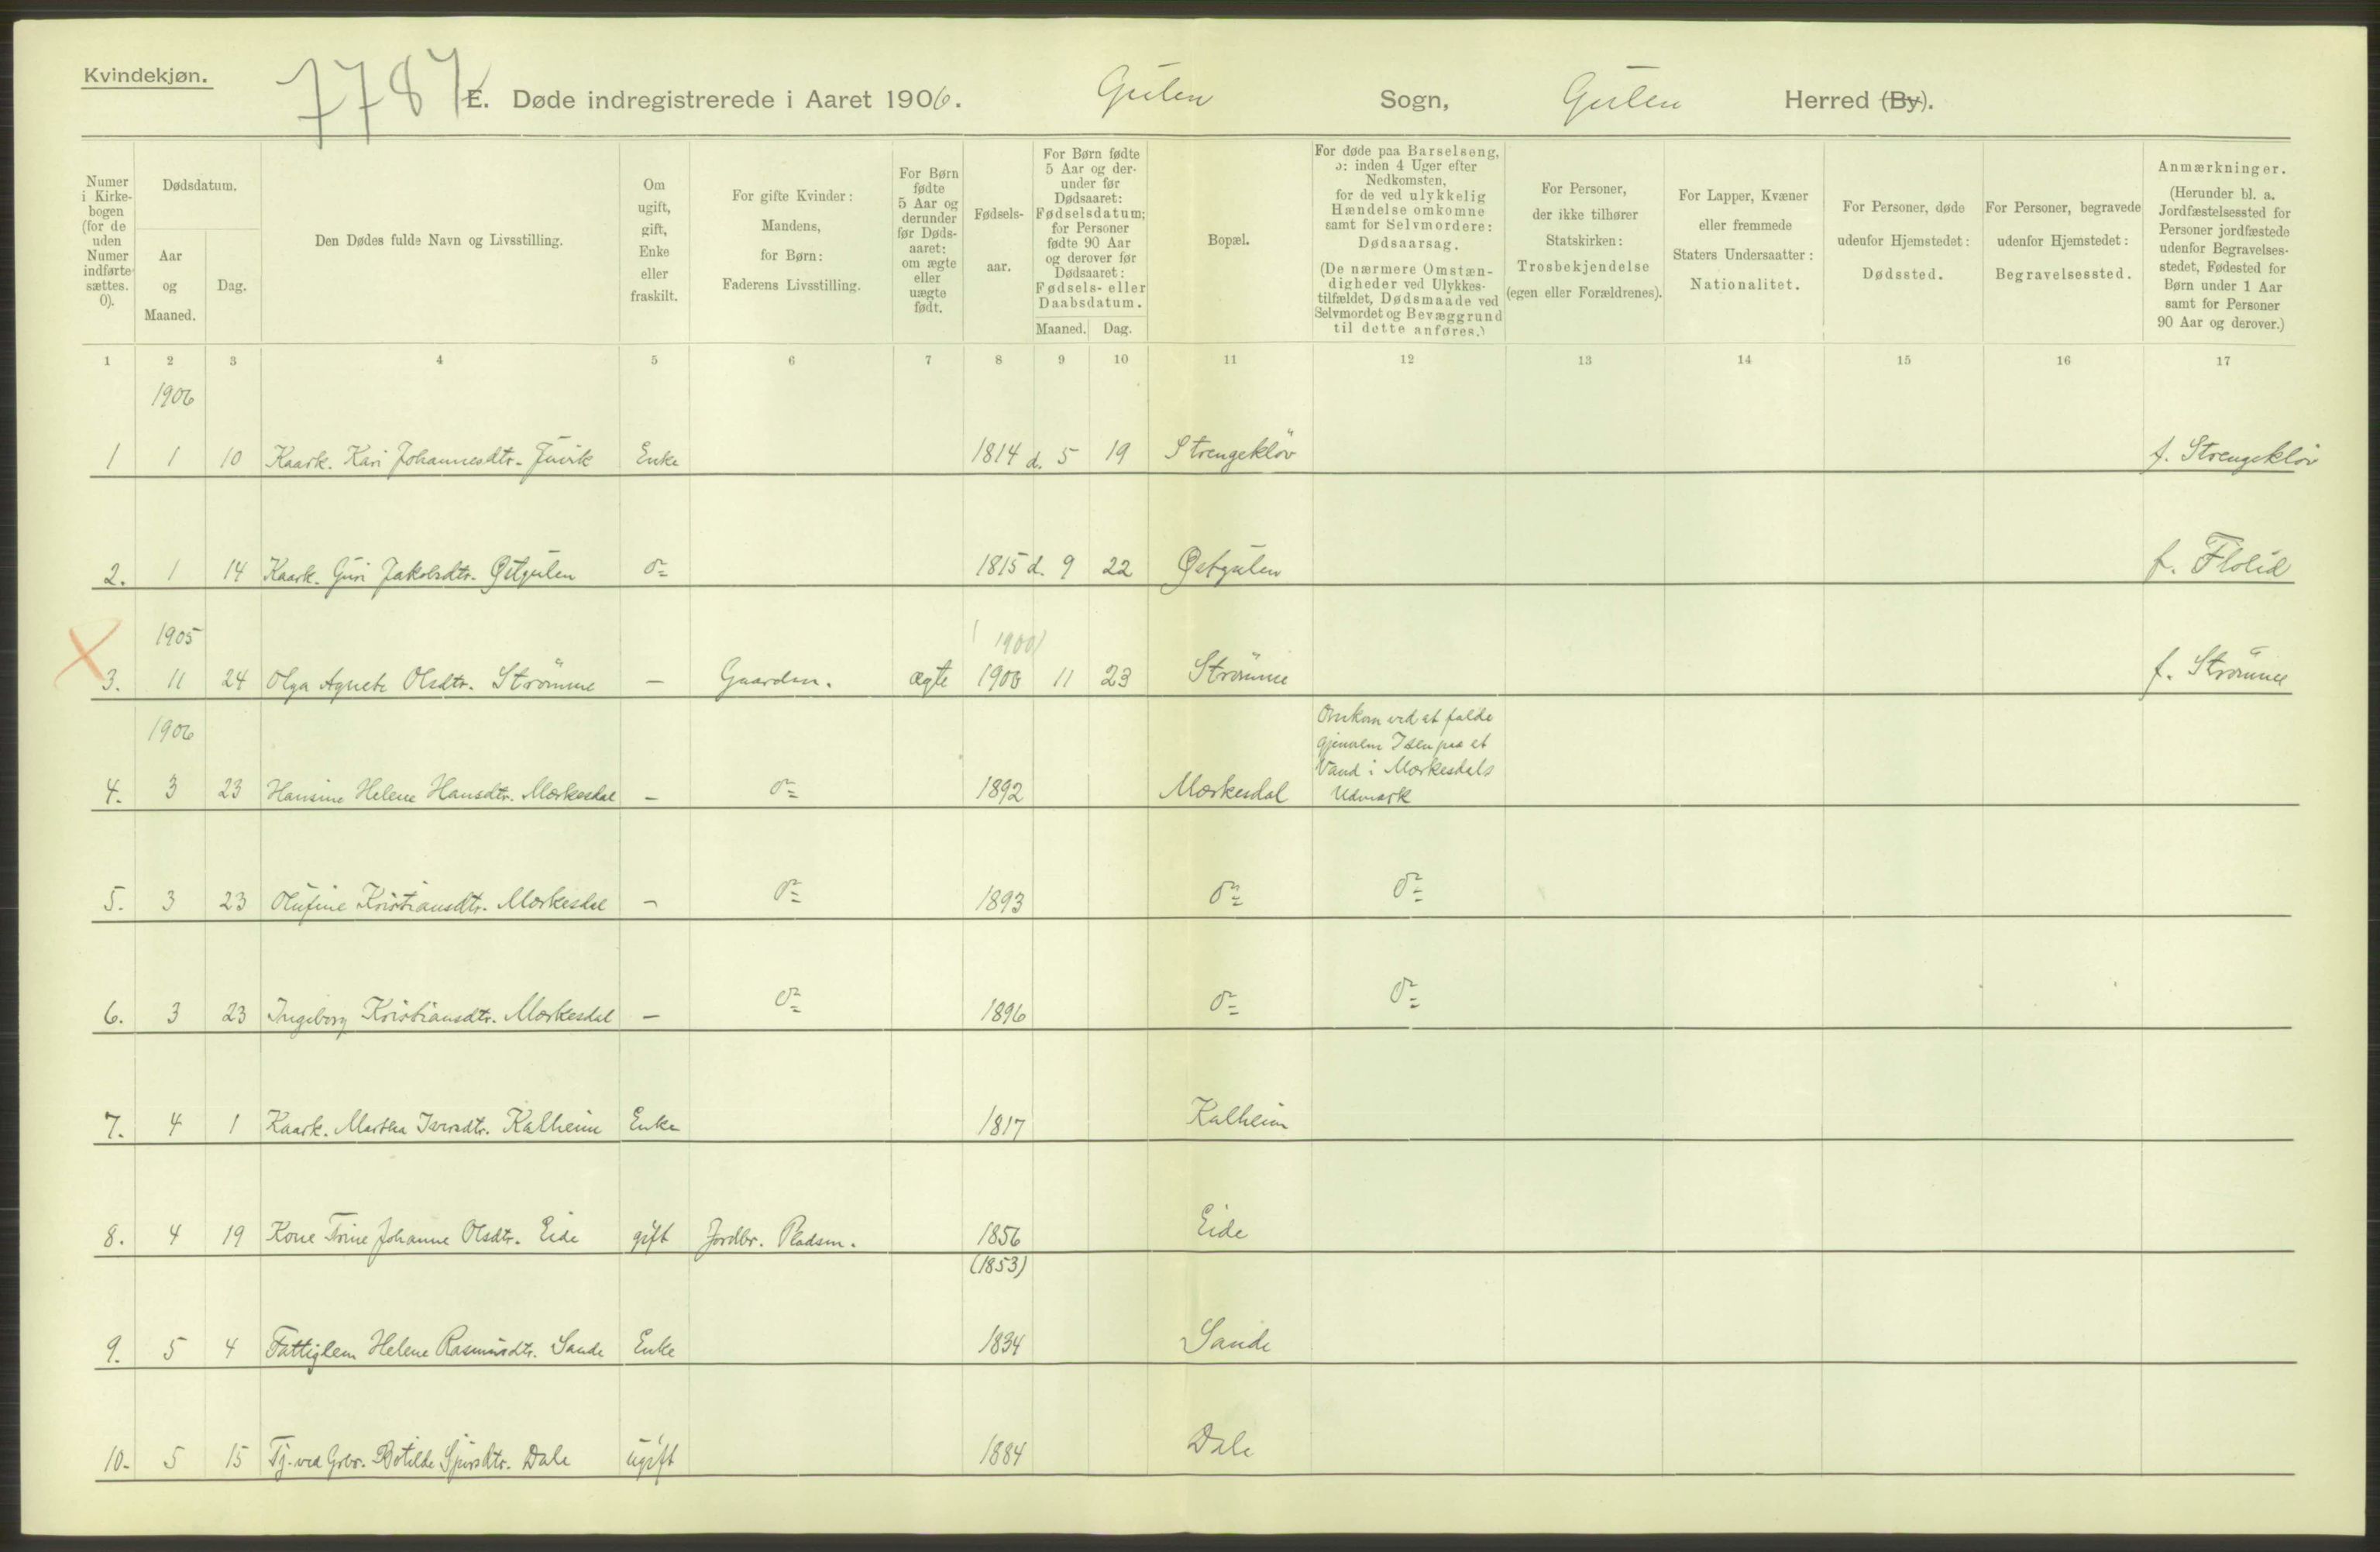 Kvindekjøn.
7787
E. Døde indregistrerede i Aaret 1906. Gulen Sogn, Gulen Herred (By).
Numer i Kirkebogen (for de uden Numer indførte sættes. 0).
Dødsdatum.
Aar og Maaned.
Dag.
Den Dødes fulde Navn og Livsstilling.
Om ugift, gift, Enke eller fraskilt.
For gifte Kvinder: Mandens, for Børn: Faderens Livsstilling.
For Børn fødte 5 Aar og derunder før Dødsaaret: om ægte eller uægte født.
Fødselsaar.
For Børn fødte 5 Aar og derunder før Dødsaaret: Fødselsdatum; for Personer fødte 90 Aar og derover før Dødsaaret: Fødsels- eller Daabsdatum.
Maaned. Dag.
Bopæl.
For døde paa Barselseng, ɔ: inden 4 Uger efter Nedkomsten, for de ved ulykkelig Hændelse omkomne samt for Selvmordere: Dødsaarsag.
(De nærmere Omstændigheder ved Ulykkestilfældet, Dødsmaade ved Selvmordet og Bevæggrund til dette anføres.)
For Personer, der ikke tilhører Statskirken: Trosbekjendelse (egen eller Forældrenes).
For Lapper, Kvæner eller fremmede Staters Undersaatter: Nationalitet.
For Personer, døde udenfor Hjemstedet: Dødssted.
For Personer, begravede udenfor Hjemstedet: Begravelsessted.
Anmærkninger.
(Herunder bl. a. Jordfæstelsessted for Personer jordfæstede udenfor Begravelsesstedet, Fødested for Børn under 1 Aar samt for Personer 90 Aar og derover.)
1 2 3 4 5 6 7 8 9 10 11 12 13 14 15 16 17
1906
1 1 10 Kaark. Kari Johannesdtr. Juvik Enke 1814 d. 5 19 Strengekløv f. Strengekløv
2. 1 14 Kaark. Guri Jakobsdtr. Østgulen do 1815 d. 9 22 Østgulen f. Flolid
1905 1900
3. 11 24 Olga Agnete Olsdtr. Strømme — Gaardm. ægte 1900 11 23 Strømme f. Strømme
1906
Omkom ved at falde
gjennem Isen paa et
Vand i Mørkesdals
4. 3 23 Hansine Helene Hansdtr. Mørkesdal — do 1892 Mørkesdal Udmark
5. 3 23 Olufine Kristiansdtr. Mørkesdal — do 1893 do do
6. 3 23 Ingeborg Kristiansdtr. Mørkesdal — do 1896 do do
7. 4 1 Kaark. Martha Iversdtr. Kalheim Enke 1817 Kalheim
8. 4 19 Kone Trine Johanne Olsdtr. Eide gift Jordbr. Pladsm. 1856 Eide
(1853)
9. 5 4 Fattiglem Helene Rasmusdtr. Sande Enke 1834 Sande
10. 5 15 Tj. ved Grbr. Botilde Sjursdtr. Dale ugift 1884 Dale